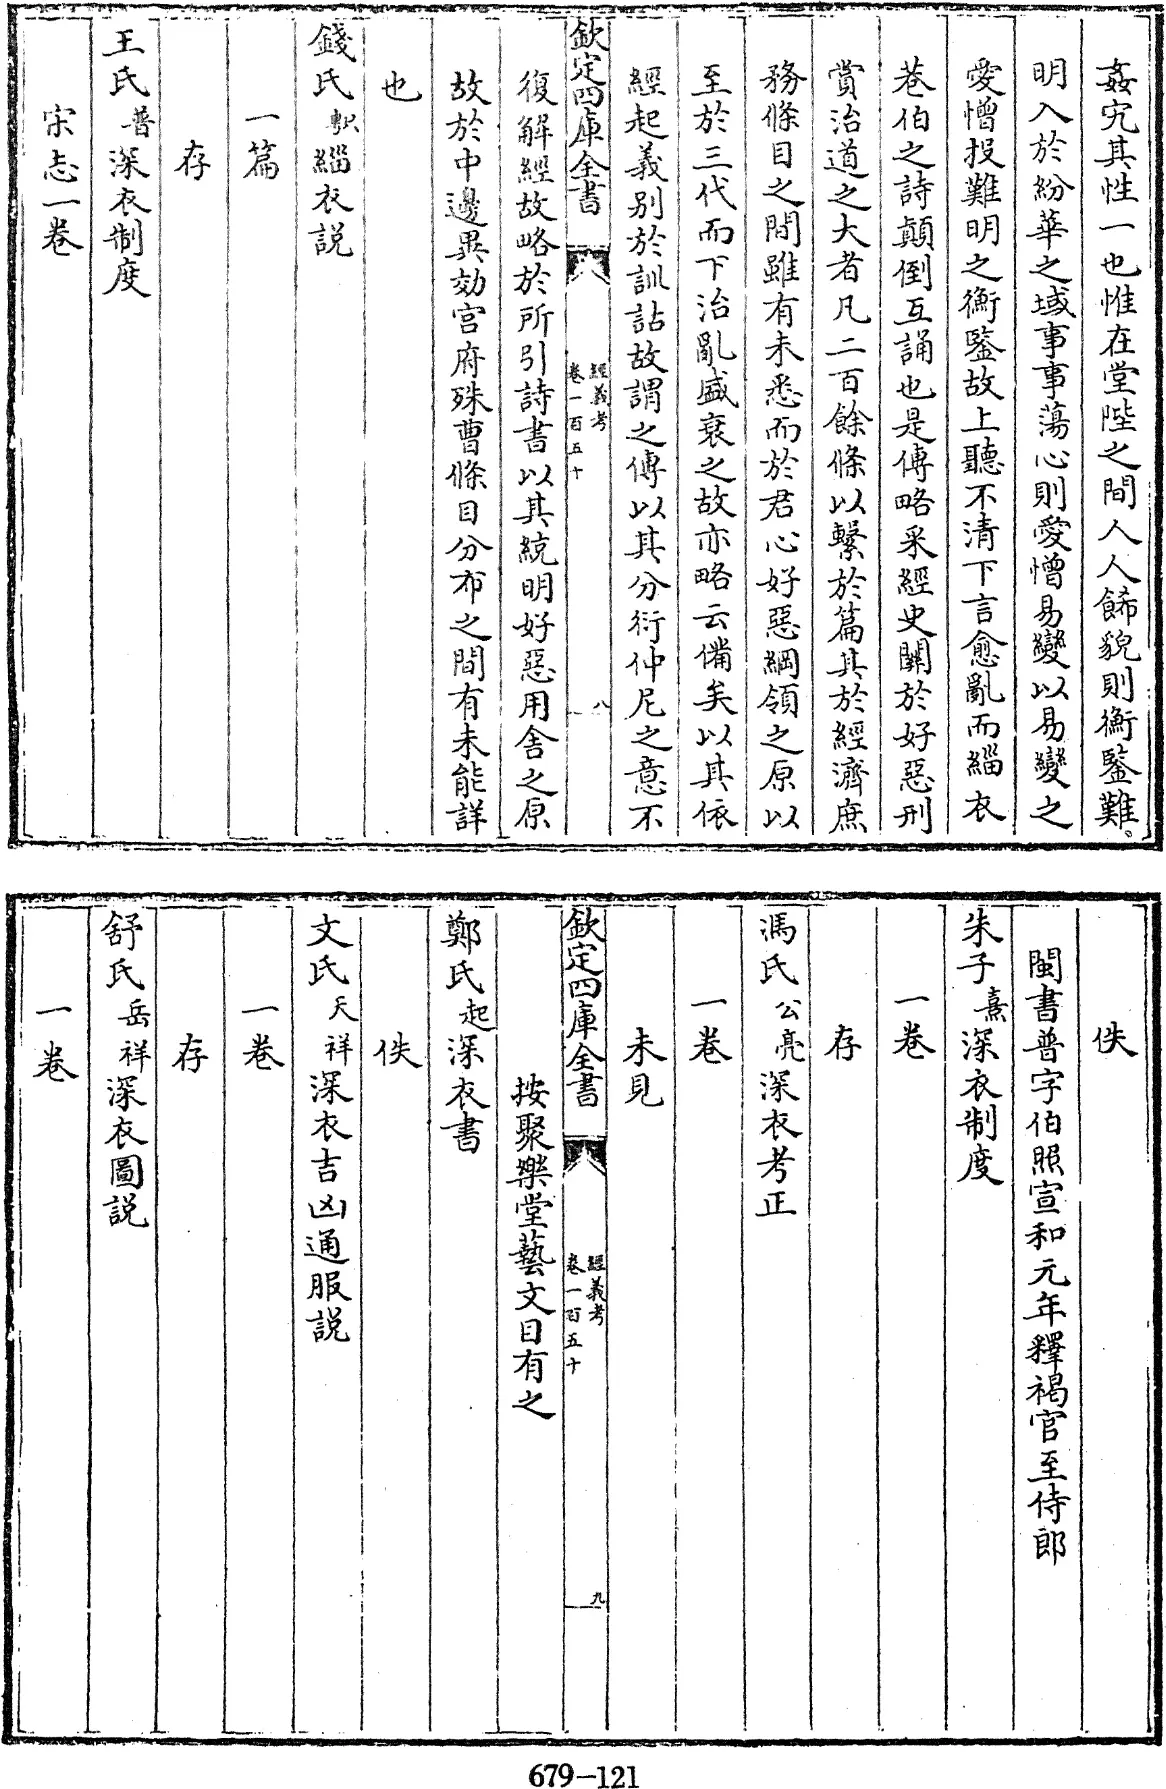 姦宄其性一也惟在堂陛之間人人餙貌則衡鍳難
明入於紛華之域事事蕩心則愛憎易變以易變之
愛憎投難明之衡鍳故上聽不清下言愈亂而緇衣
巷伯之詩顛倒互誦也是傳略采經史闗於好惡刑
賞治道之大者凡二百餘條以繫於篇其於經濟庶
務條目之間雖有未悉而於君心好惡綱領之原以
至於三代而下治亂盛衰之故亦略云備矣以其依
經起義别於訓詁故謂之傳以其分衍仲尼之意不
欽定四庫全書
經義考
卷一百五十
八
復解經故略於所引詩書以其統明好惡用舍之原
故於中邊異効宫府殊曹條目分布之間有未能詳
也
錢氏軹緇衣説
一篇
存
王氏普深衣制度
宋志一卷
佚
閩書普字伯照宣和元年釋褐官至侍郎
朱子熹深衣制度
一卷
存
馮氏公亮深衣考正
一卷
未見
欽定四庫全書
經義考
卷一百五十
九
按聚樂堂藝文目有之
鄭氏起深衣書
佚
文氏天祥深衣吉凶通服説
一卷
存
舒氏岳祥深衣圖説
一卷
679-121